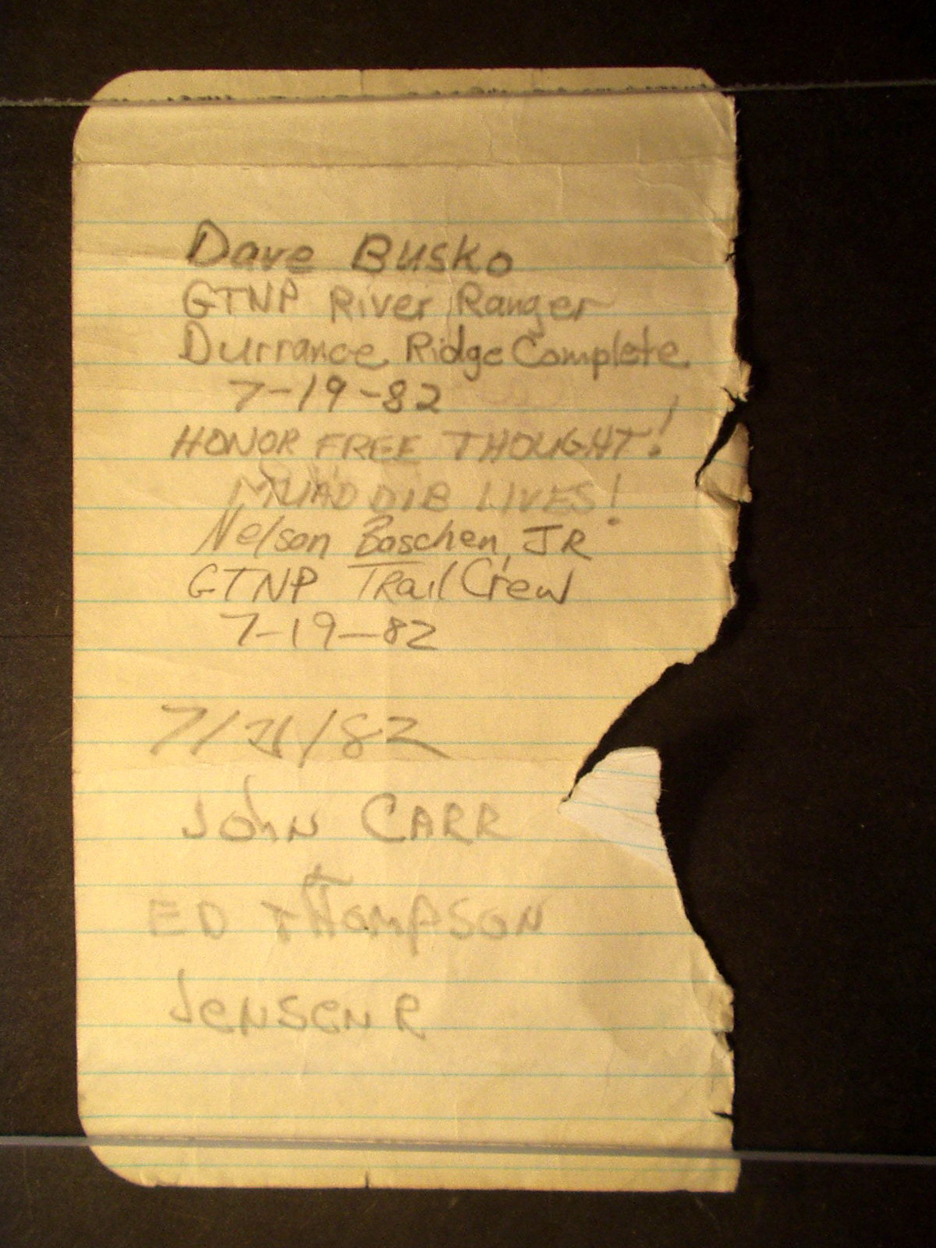 Dave Busko
GTNP River Ranger
Durrance Ridge Complete
7-19-82
HONOR FREE THOUGHT!
MUAD DIB LIVES!
Nelson Boschen, JR
GTNP Trail Crew
7-19-82
7/21/82
John CARR
+
ED THOMPSON
JENSEN R